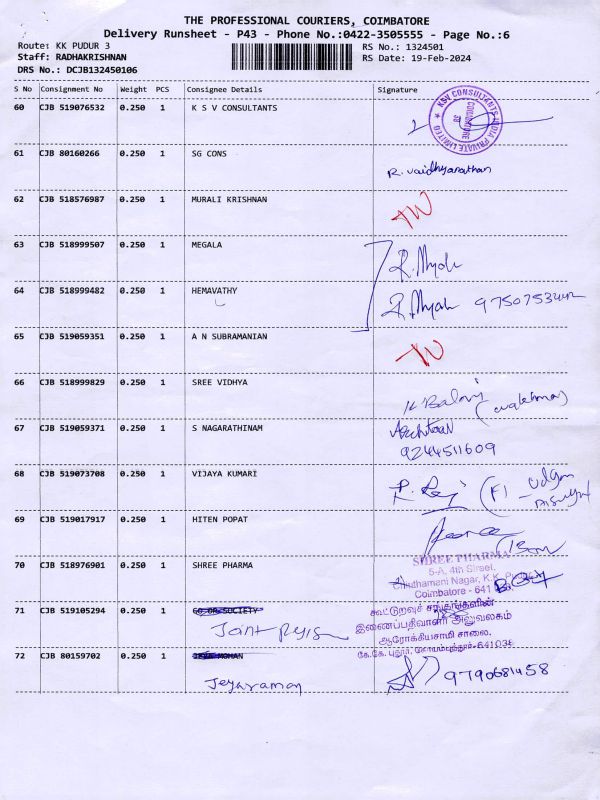 THE PROFESSIONAL COURIERS, COIMBATORE
Delivery Runsheet - P43 - Phone No.:0422-3505555 - Page No.:6
Route: KK PUDUR 3
RS No.: 1324501
Staff: RADHAKRISHNAN
RS Date: 19-Feb-2024
DRS No.: DCJB132450106
S No Consignment No Weight PCS Consignee Details Signature
60 CJB 519076532 0.250 1 K S V CONSULTANTS
KSV CONSULTANTS INDIA PRIVATE LIMITED
COIMBATORE
61 CJB 80160266 0.250 1 SG CONS
R. Vaidhyanathan
62 CJB 518576987 0.250 1 MURALI KRISHNAN
63 CJB 518999507 0.250 1 MEGALA
64 CJB 518999482 0.250 1 HEMAVATHY
65 CJB 519059351 0.250 1 A N SUBRAMANIAN
66 CJB 518999829 0.250 1 SREE VIDHYA
67 CJB 519059371 0.250 1 S NAGARATHINAM
9244511609
68 CJB 519073708 0.250 1 VIJAYA KUMARI
69 CJB 519017917 0.250 1 HITEN POPAT
70 CJB 518976901 0.250 1 SHREE PHARMA
SHREE PHARMA
5-A, 4th Street,
Chidhamani Nagar, K.K.
Coimbatore - 641
71 CJB 519105294 0.250 1 CO OP SOCIETY
கூட்டுறவுச் சங்கங்களின்
இணைப்பதிவாளர் அலுவலகம்
ஆரோக்கியசாமி சாலை,
கே.கே. புதூர், கோயம்புத்தூர்-641038
72 CJB 80159702 0.250 1 MOHAN
Jeyaraman
9790681458